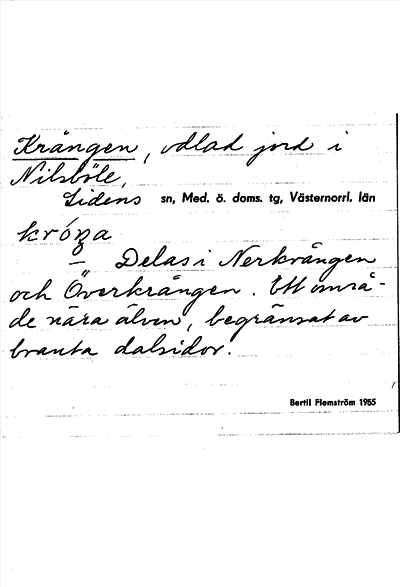 Krången, odlad jord i
Nilsböle,
Lidens sn, Med. ö. doms. tg, Västernorrl. län
Delas i Nerkrången
och Överkrången. Ett områ-
de nära älven, begränsat av
branta dalsidor.
Bertil Flemström 1955